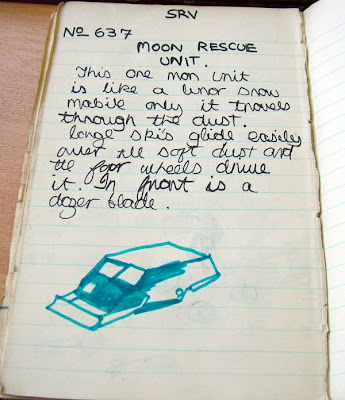 SRV
No 637
MOON RESCUE
UNIT.
This one man unit
is like a lunor snow
mobile only it travels
through the dust.
longe skis glide easiely
over the soft dust and
the foor wheels drive
it. In front is a
dozer blade.